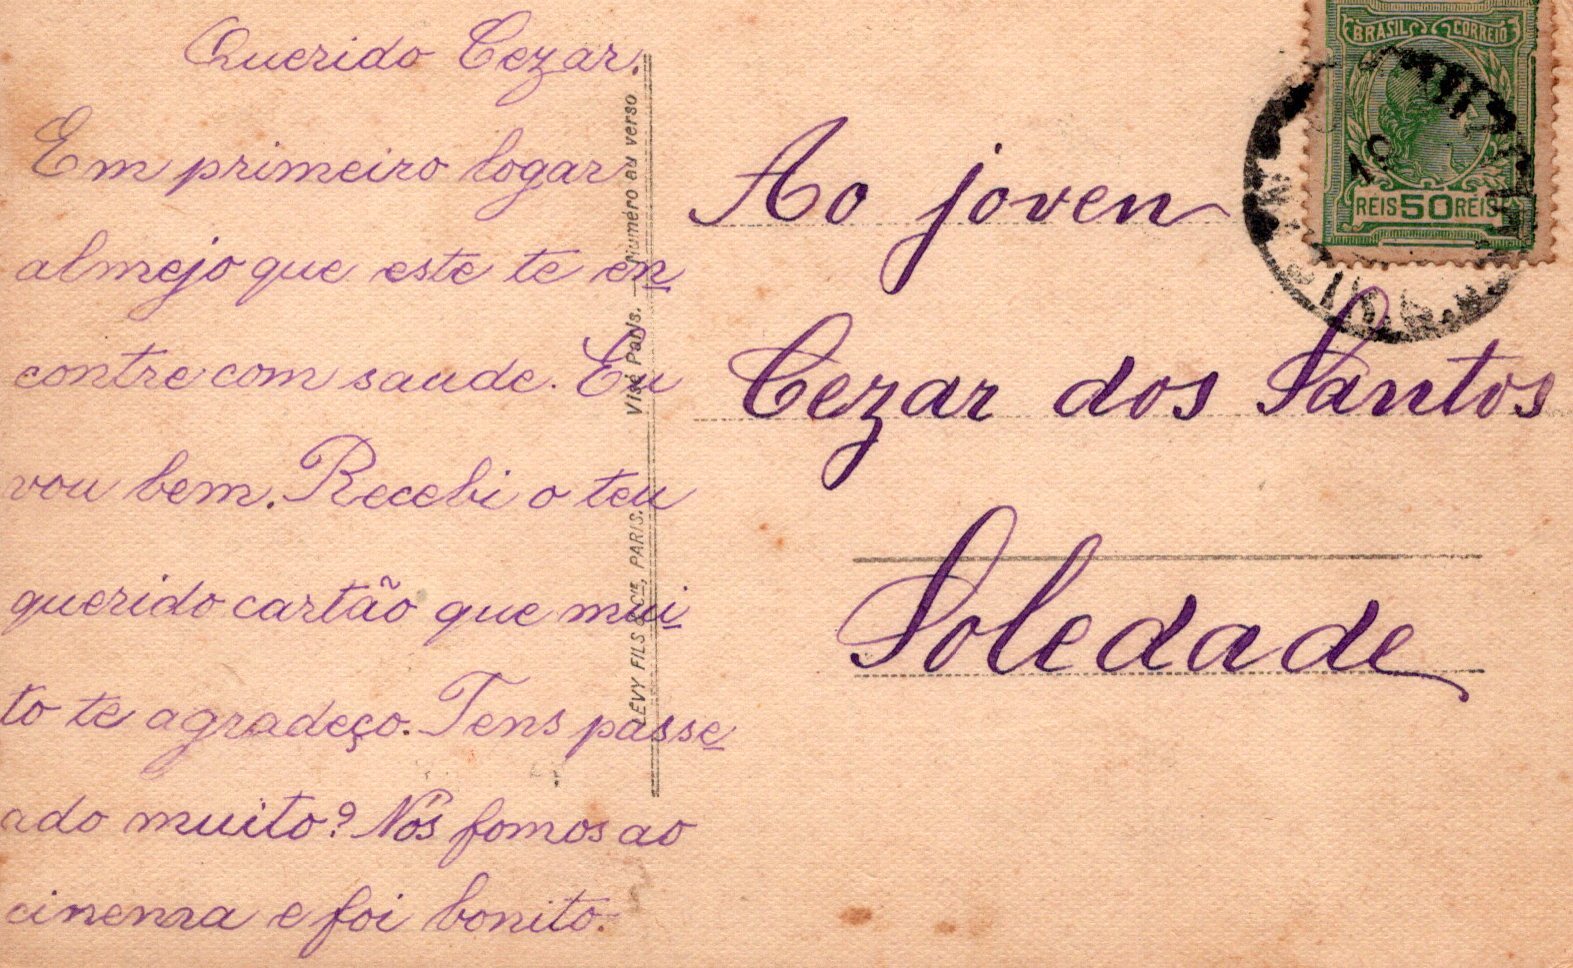 Querido Cezar.
Em primeiro logar
almejo que este te en
contre com saude. Eu
vou bem. Recebi o teu
querido cartão que mui
to te agradeço. Tens passe
ado muito? Nós fomos ao
cinema e foi bonito.
LÉVY FILS & Cie, PARIS. Visé Paris. — Numéro au verso
BRASIL CORREIO
REIS 50 REIS
Ao joven
Cezar dos Santos
Soledade